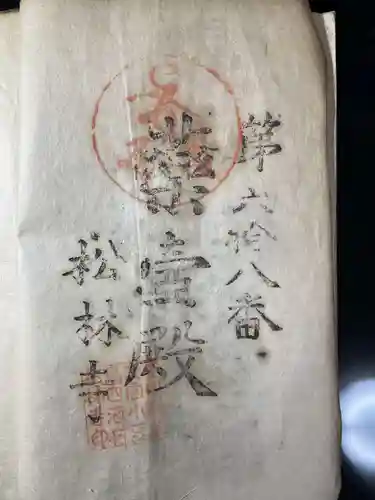 第六拾八番
薬壺殿
松林寺